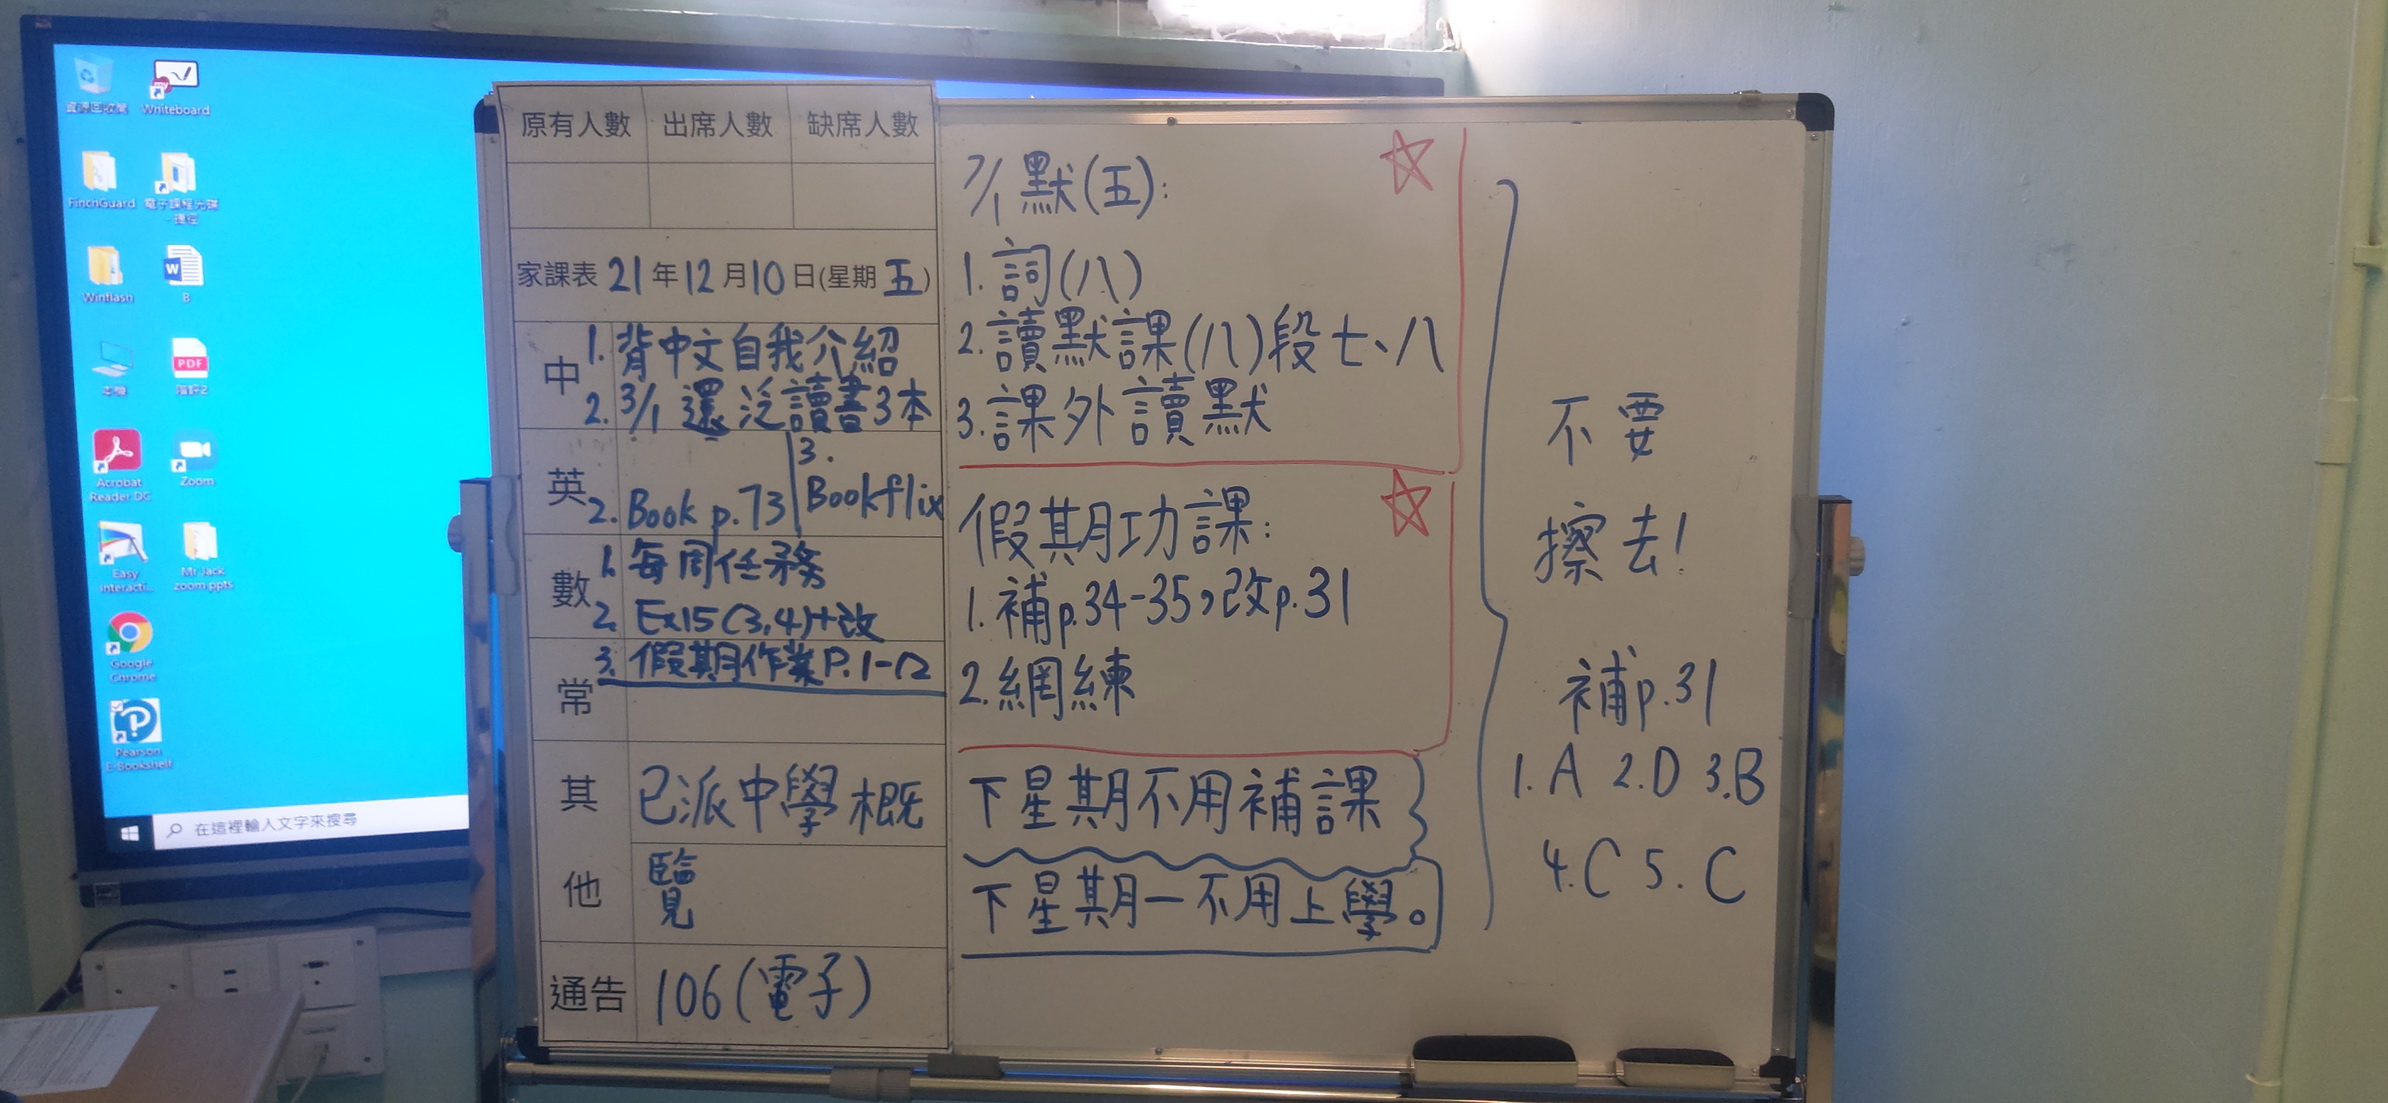 資源回收筒
Whiteboard
FinchGuard
電子課程光碟 - 捷徑
Winflash
B
本機
Acrobat Reader DC
Zoom
Easy interacti...
Mr Jack zoom ppts
Google Chrome
Pearson E-Bookshelf
在這裡輸入文字來搜尋
原有人數 出席人數 缺席人數
家課表 21年12月10日(星期五)
中
1. 背中文自我介紹
2. 3/1 還泛讀書3本
英
2. Book p.73
3. Bookflix
數
1. 每周任務
2. Ex15(3,4)+改
3. 假期作業P.1-12
常
其他
已派中學概
覽
通告 106(電子)
7/1 默(五):
1. 詞(八)
2. 讀默課(八)段七、八
3. 課外讀默
假期功課:
1. 補p.34-35,改p.31
2. 網練
下星期不用補課
下星期一不用上學。
不要
擦去!
補p.31
1.A 2.D 3.B
4.C 5.C